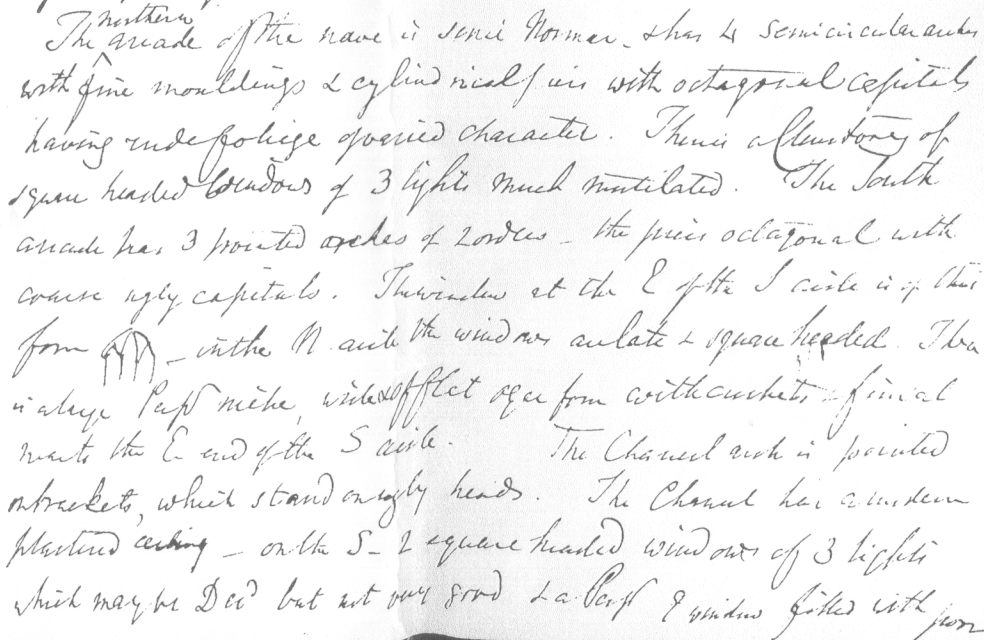 northern
The arcade of the nave is semi Norman - & has 4 semicircular arches
with fine mouldings & cylindrical piers with octagonal capitals
having rude foliage of varied character. There is a Clerestory of
square headed windows of 3 lights much mutilated. The South
arcade has 3 pointed arches of 2 orders - the piers octagonal with
coarse ugly capitals. The window at the E of the S aisle is of this
form - in the N. aisle the windows are late & square headed. There
is a large Perp niche, of flat ogee form with crockets & finial
the E end of the S aisle. The Chancel arch is pointed
on brackets, which stand on ugly heads. The Chancel has a modern
plastered ceiling - on the S - 2 square headed windows of 3 lights
which may be Dec but not very good & a Perp E window filled with poor